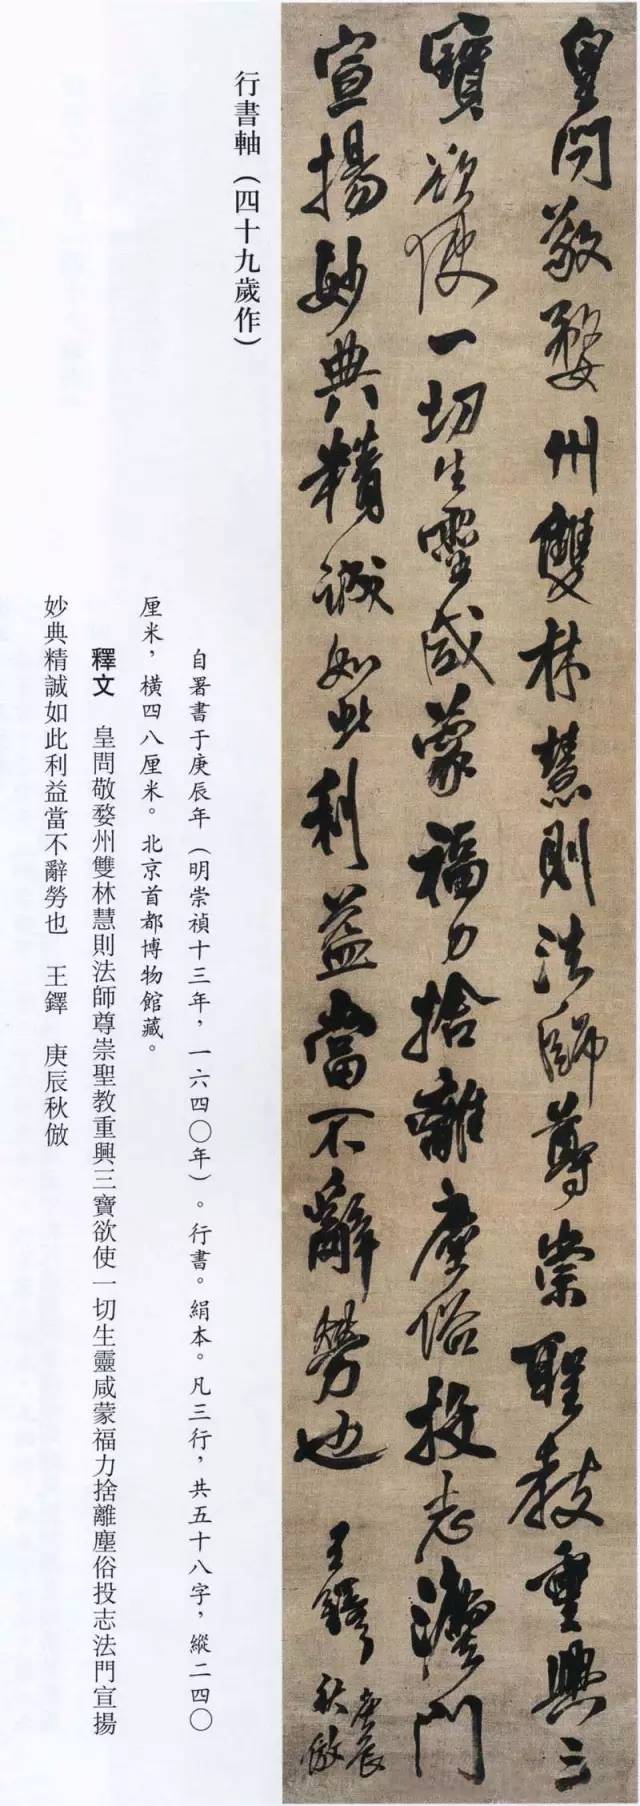 皇問敬婺州雙林慧則法師尊崇聖教重興三
寶欲使一切生靈咸蒙福力捨離塵俗投志灋門
宣揚妙典精誠如此利益當不辭勞也 王鐸 庚辰
秋倣
行書軸（四十九歲作）
自署書于庚辰年（明崇禎十三年，一六四〇年）。行書。絹本。凡三行，共五十八字，縱二四〇
厘米，橫四八厘米。北京首都博物館藏。
釋文 皇問敬婺州雙林慧則法師尊崇聖教重興三寶欲使一切生靈咸蒙福力捨離塵俗投志法門宣揚
妙典精誠如此利益當不辭勞也 王鐸 庚辰秋倣